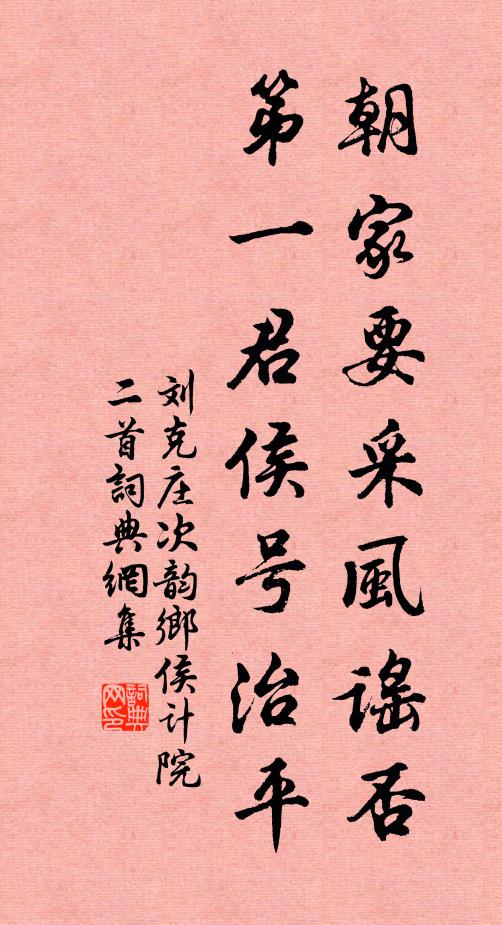 朝家要采風謠否
第一君侯号治平
刘克庄次韵鄉侯计院
二首詞典網集
詞典網印